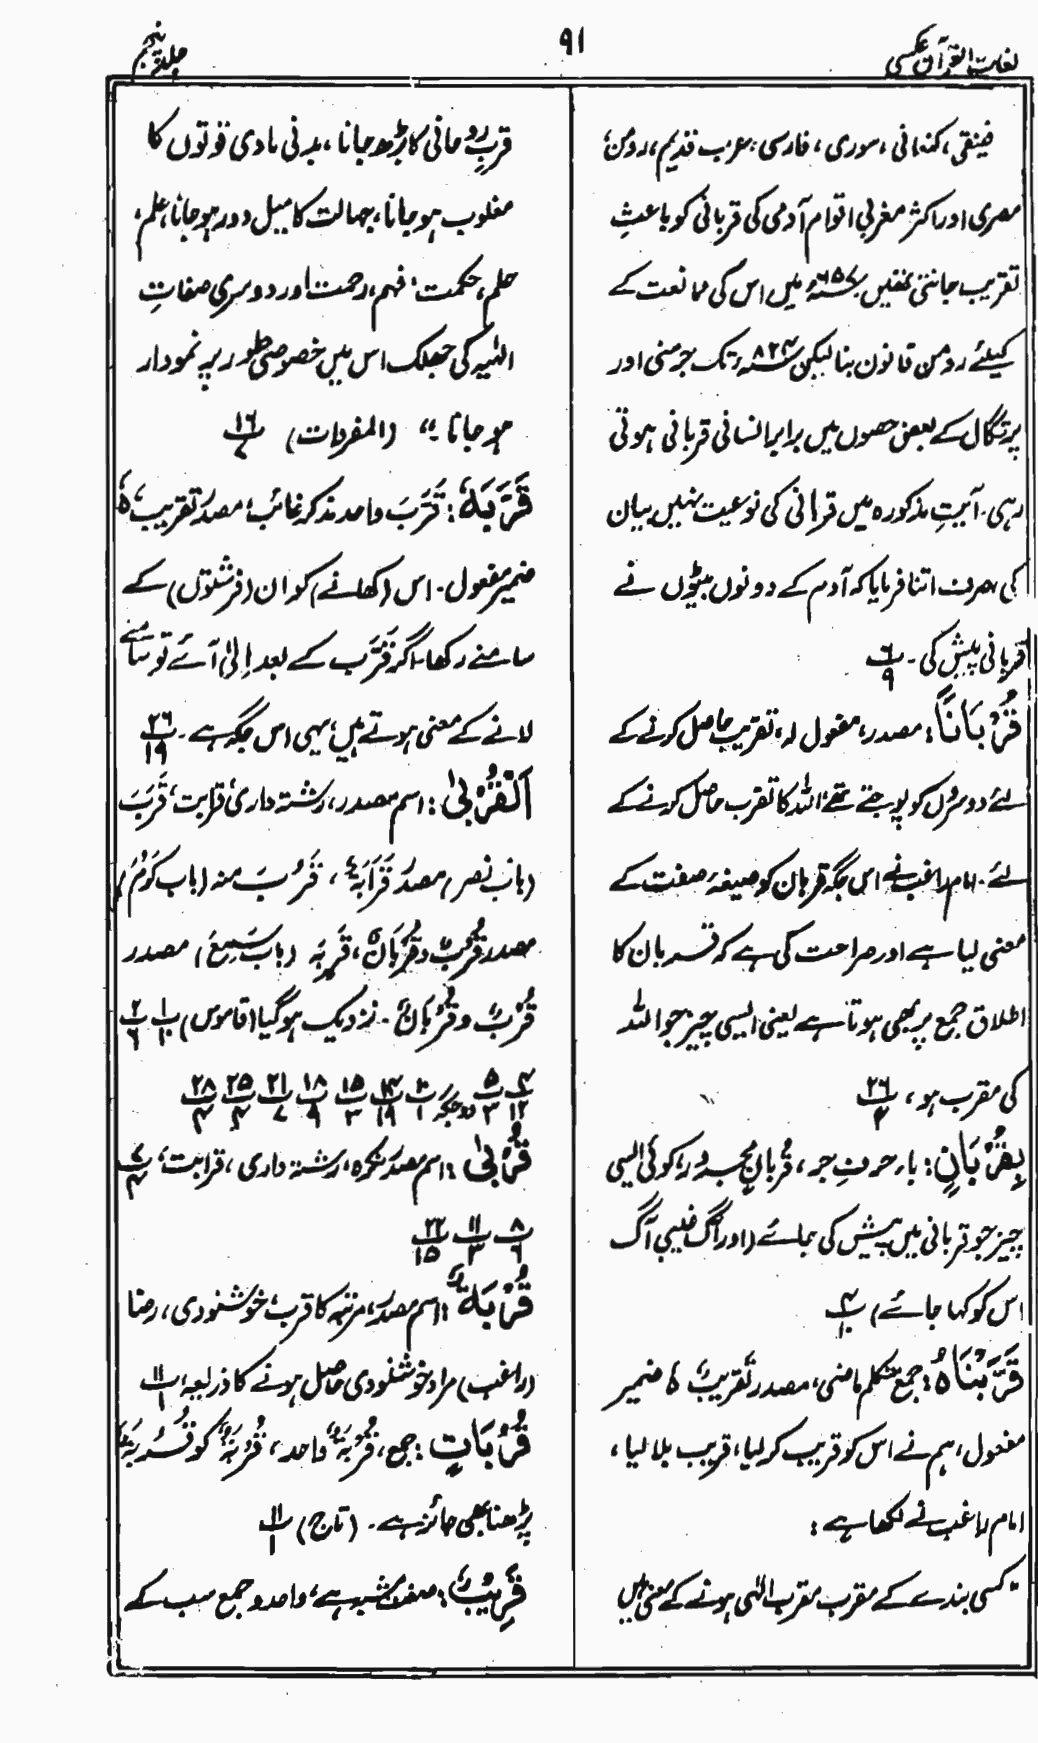 لغات القرآن عکسی
۹۱
جلد پنجم
فینقی، کنعانی، سوری، فارسی، عرب قدیم، رومن
مصری اور اکثر مغربی اقوام آدمی کی قربانی کو باعثِ
تقریب جانتی تھیں ۶۵۷ء میں اس کی ممانعت کے
کیلئے رومن قانون بنا لیکن ۸۲۴ء تک جرمنی اور
پرتگال کے بعض حصوں میں برابر انسانی قربانی ہوتی
رہی۔ آیتِ مذکورہ میں قربانی کی نوعیت نہیں بیان
کی صرف اتنا فرمایا کہ آدم کے دونوں بیٹوں نے
قربانی پیش کی۔ ۶/۹
قُرْبَانًا: مصدر، مفعول لہ، تقریب حاصل کرنے کے
لئے دوسروں کو پوجتے تھے؛ اللہ کا تقرب حاصل کرنے کے
لئے۔ امام راغب نے اس جگہ قربان کو صیغۂ صفت کے
معنی لیا ہے اور صراحت کی ہے کہ قربان کا
اطلاق جمع پر بھی ہوتا ہے یعنی ایسی چیز جو اللہ
کی مقرب ہو، ۲۶/۳
بِقُرْبَانٍ: بار حرفِ جر، قُربانٍ مجرور، کوئی ایسی
چیز جو قربانی میں پیش کی جائے (اور آگ غیبی آگ
اس کو کھا جائے) ۴/۱۰
قَرَّبْنَاهُ: جمع متکلم ماضی، مصدر تَقْرِیْبٌ ہٗ ضمیر
مفعول، ہم نے اس کو قریب کر لیا، قریب بلا لیا،
امام راغب نے لکھا ہے:
"کسی بندے کے مقرب تقرب الٰہی ہونے کے معنی ہیں
قربِ روحانی کا بڑھ جانا، بدنی مادی قوتوں کا
مغلوب ہو جانا، جہالت کا میل دور ہو جانا، علم،
حلم، حکمت، فہم، رحمت اور دوسری صفاتِ
الٰہیہ کی جھلک اس میں خصوصی طور پر نمودار
ہو جانا۔" (المفردات) ۱۶/۷
قَرَّبَهٗ: قَرَّبَ واحد مذکر غائب، مصدر تقریب، ہٗ
ضمیر مفعول۔ اس (کھانے) کو ان (فرشتوں) کے
سامنے رکھا۔ اگر قَرَّب کے بعد اِلیٰ آئے تو سامنے
لانے کے معنی ہوتے ہیں، یہی اس جگہ ہے۔ ۲۶/۱۹
اَلْقُرْبیٰ: اسم مصدر، رشتہ داری، قرابت، قَرَبَ
(باب نصر) مصدر قَرَابَةٌ، قَرُبَ منہ (باب کَرُمَ)
مصدر قُرْبٌ و قُرْبَانٌ، قَرِبَہٗ (باب سَمِعَ) مصدر
قُرْبٌ و قُرْبَانٌ۔ نزدیک ہو گیا (قاموس) ۱/۱۰ ۲/۶
۴/۱۲ ۵/۳ دو جگہ ۱۰/۱ ۱۴/۱۹ ۱۵/۳ ۱۸/۹ ۲۱/۷ ۲۵/۴ ۲۸/۴
قُرْبیٰ: اسم مصدر نکرہ، رشتہ داری، قرابت، ۷/۴
۸/۶ ۱۱/۳ ۲۲/۱۵
قُرْبَةٌ: اسم مصدر، مرتبہ کا قرب، خوشنودی، رضا
(راغب) مراد خوشنودی حاصل ہونے کا ذریعہ، ۱۱/۱
قُرُبَاتٍ: جمع، قُرْبَةٌ واحد، قُرْبَةٌ کو قُرُبَةٌ
پڑھنا بھی جائز ہے۔ (تاج) ۱۱/۱
قَرِیْبٌ: صفت مشبہ ہے، واحد و جمع سب کے